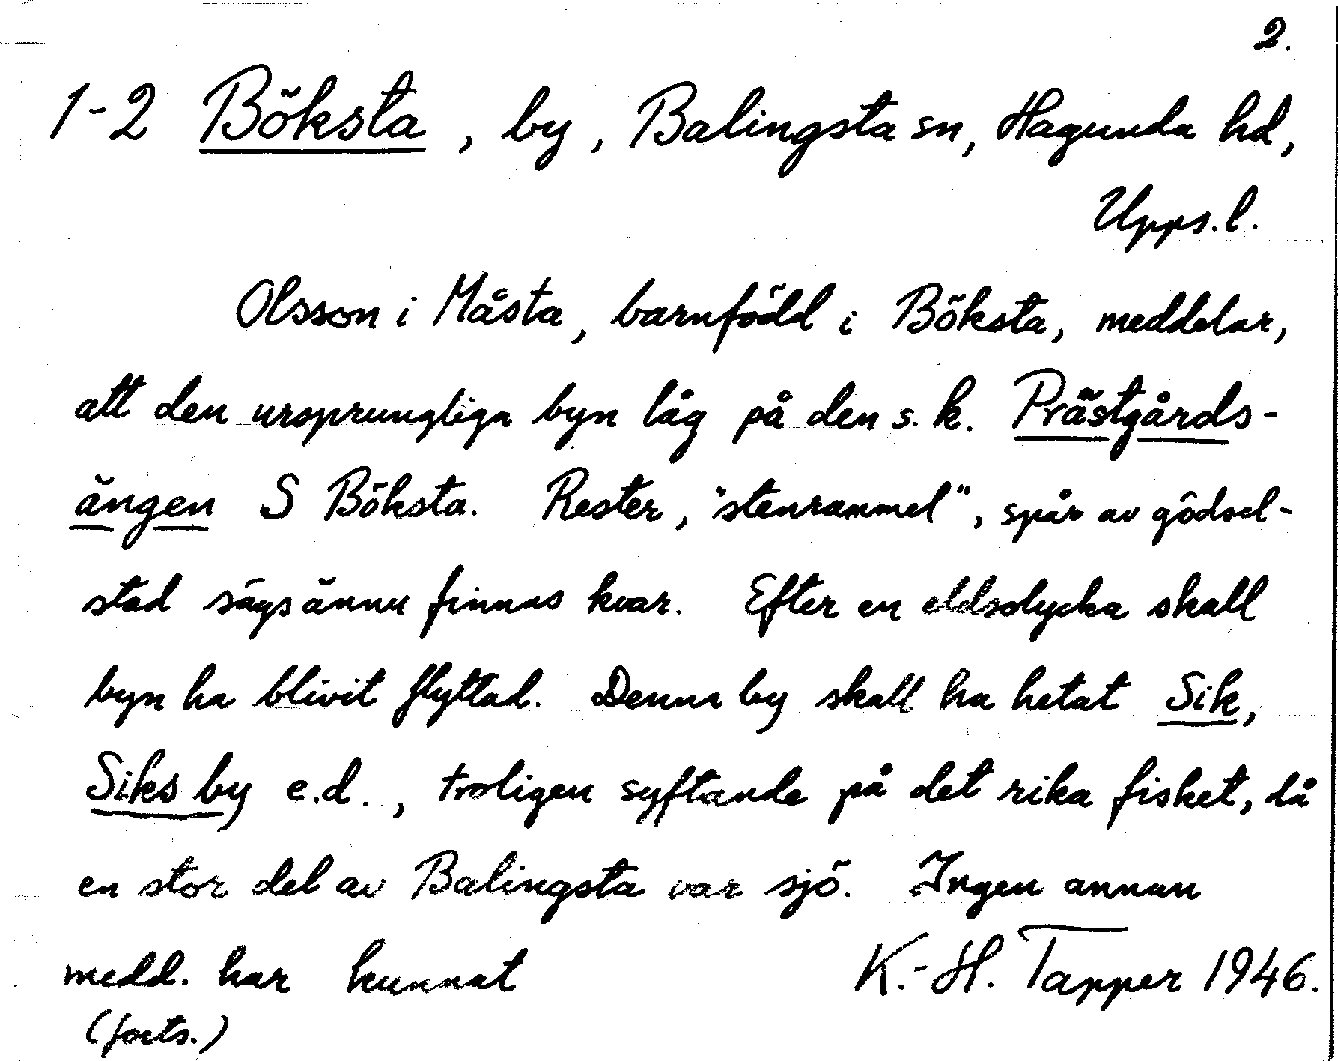 2.
1-2 Böksta, by, Balingsta sn, Hagunda hd,
Upps.l.
Olsson i Måsta, barnfödd i Böksta, meddelar,
att den ursprungliga byn låg på den s.k. Prästgårds-
ängen S Böksta. Rester, "stenrammel", spår av gödsel-
stad sägs ännu finnas kvar. Efter en eldsolycka skall
byn ha blivit flyttad. Denna by skall ha hetat Sik,
Siks by e.d., troligen syftande på det rika fisket, då
en stor del av Balingsta var sjö. Ingen annan
medd. har kunnat K.-H. Tapper 1946.
(forts.)